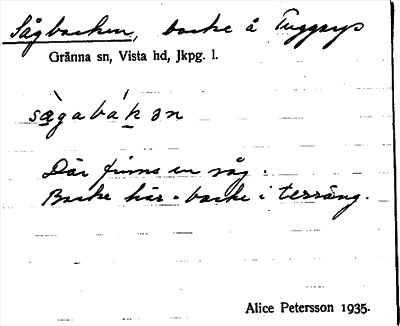 Sågbacken, backe å Tuggarp
Gränna sn, Vista hd, Jkpg. l.
sàgabákən
Där finns en såg.
Backe här = backe i terräng.
Alice Petersson 1935.